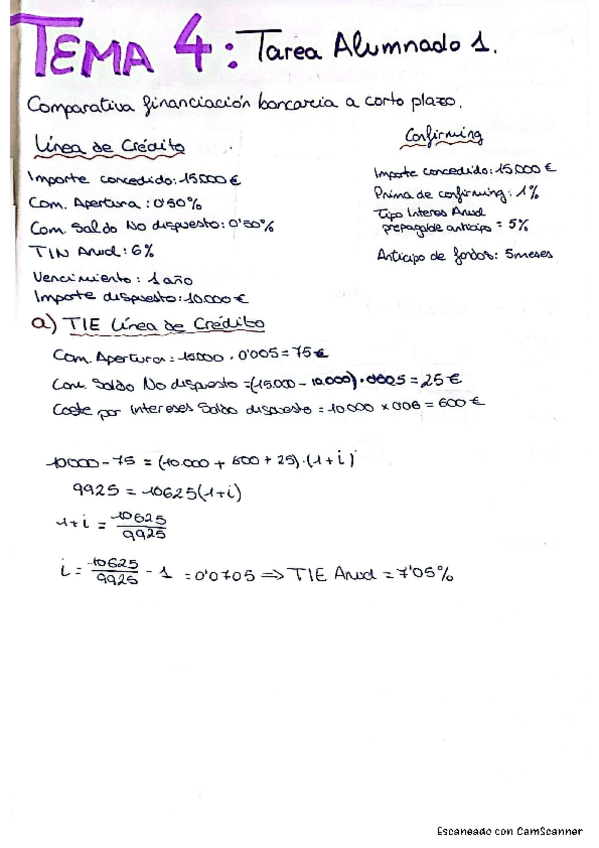 TEMA 4: Tarea Alumnado 1.
Comparativa financiación bancaria a corto plazo.
Línea de Crédito
Importe concedido: 15000 €
Com. Apertura: 0'50%
Com. Saldo No dispuesto: 0'50%
TIN Anual: 6%
Vencimiento: 1 año
Importe dispuesto: 10.000 €
Confirming
Importe concedido: 15.000 €
Prima de confirming: 1%
Tipo Interes Anual
prepagable anticipo = 5%
Anticipo de fondos: 5 meses
a) TIE Línea de Crédito
Com. Apertura = 15000 · 0'005 = 75 €
Com. Saldo No dispuesto = (15.000 - 10.000) · 0'005 = 25 €
Coste por intereses Saldo dispuesto = 10.000 x 0'06 = 600 €
10000 - 75 = (10.000 + 600 + 25) · (1+i)
9925 = 10625 (1+i)
1+i = 10625 / 9925
i = 10625 / 9925 - 1 = 0'0705 ⇒ TIE Anual = 7'05%
Escaneado con CamScanner